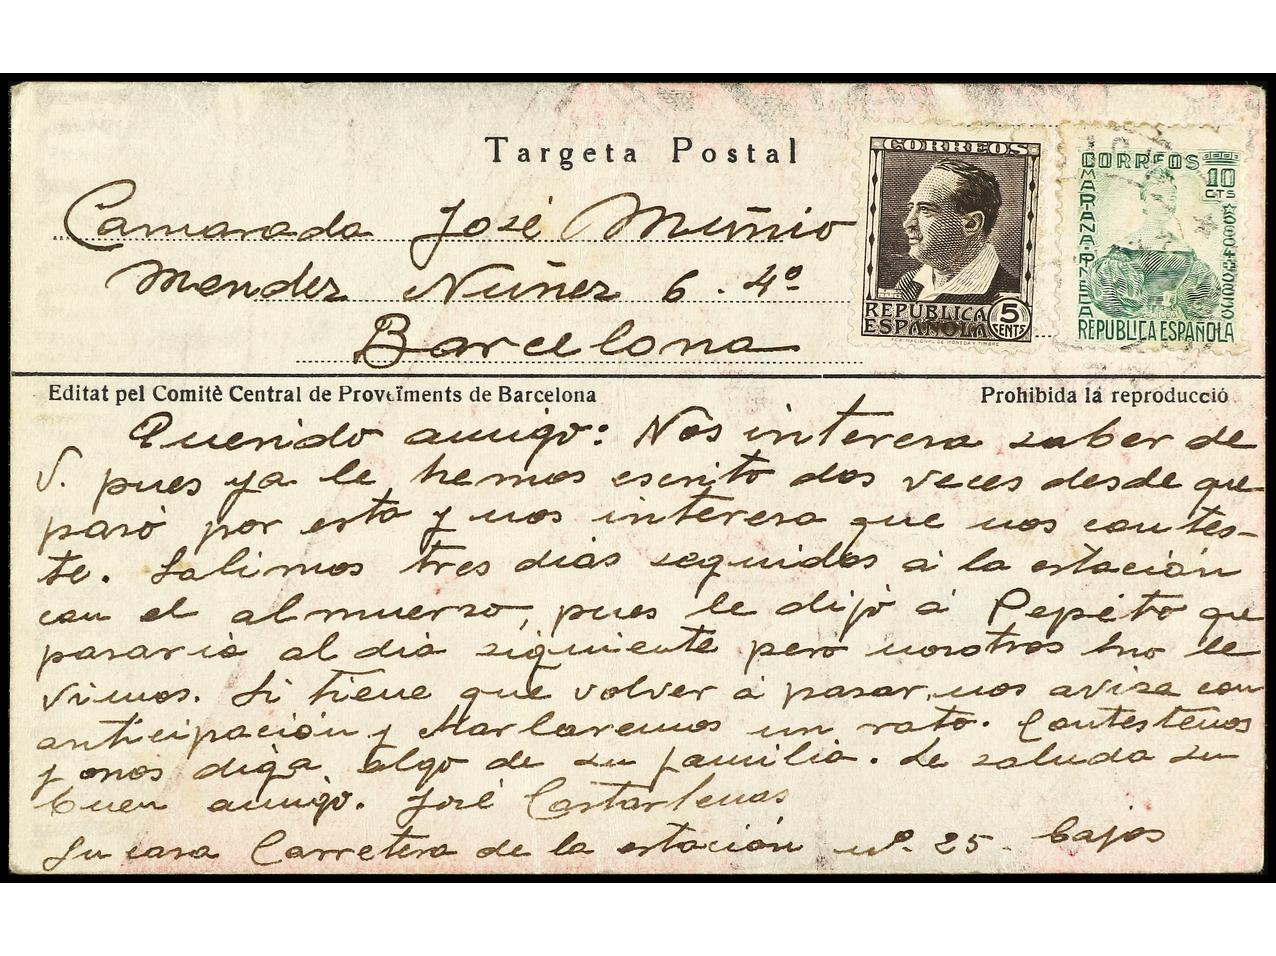 Targeta Postal
Camarada José Muñio
Mendez Nuñez 6. 4º
Barcelona
CORREOS
REPUBLICA
ESPAÑOLA
5
CENTS
CORREOS
10
CTS
MARIANA PINEDA
REPUBLICA ESPAÑOLA
Editat pel Comitè Central de Proveïments de Barcelona
Prohibida la reproducció
Querido amigo: Nos interesa saber de
V. pues ya le hemos escrito dos veces desde que
pasó por esta y nos interesa que nos contes-
te. Salimos tres dias seguidos á la estación
con el almuerzo, pues le dijó á Pepito que
pasaria al dia siguiente pero nosotros no le
vimos. Si tiene que volver á pasar, nos avisa con
anticipación y charlaremos un rato. Contestenos
y nos diga algo de su familia. Le saluda su
buen amigo. José Castarlenas
Su casa Carretera de la estación nº. 25. bajos